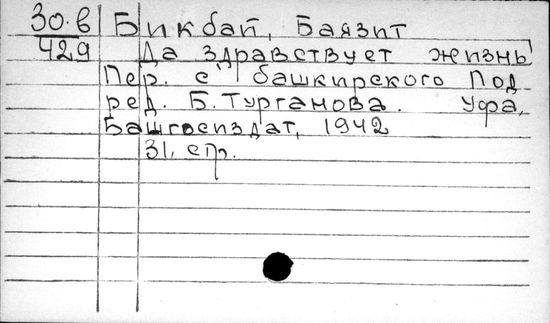 30.в Бикбай, Баязит
429 Да здравствует жизнь!
Пер. с башкирского Под
ред. Б. Турганова. Уфа,
Башгосиздат, 1942
31, стр.